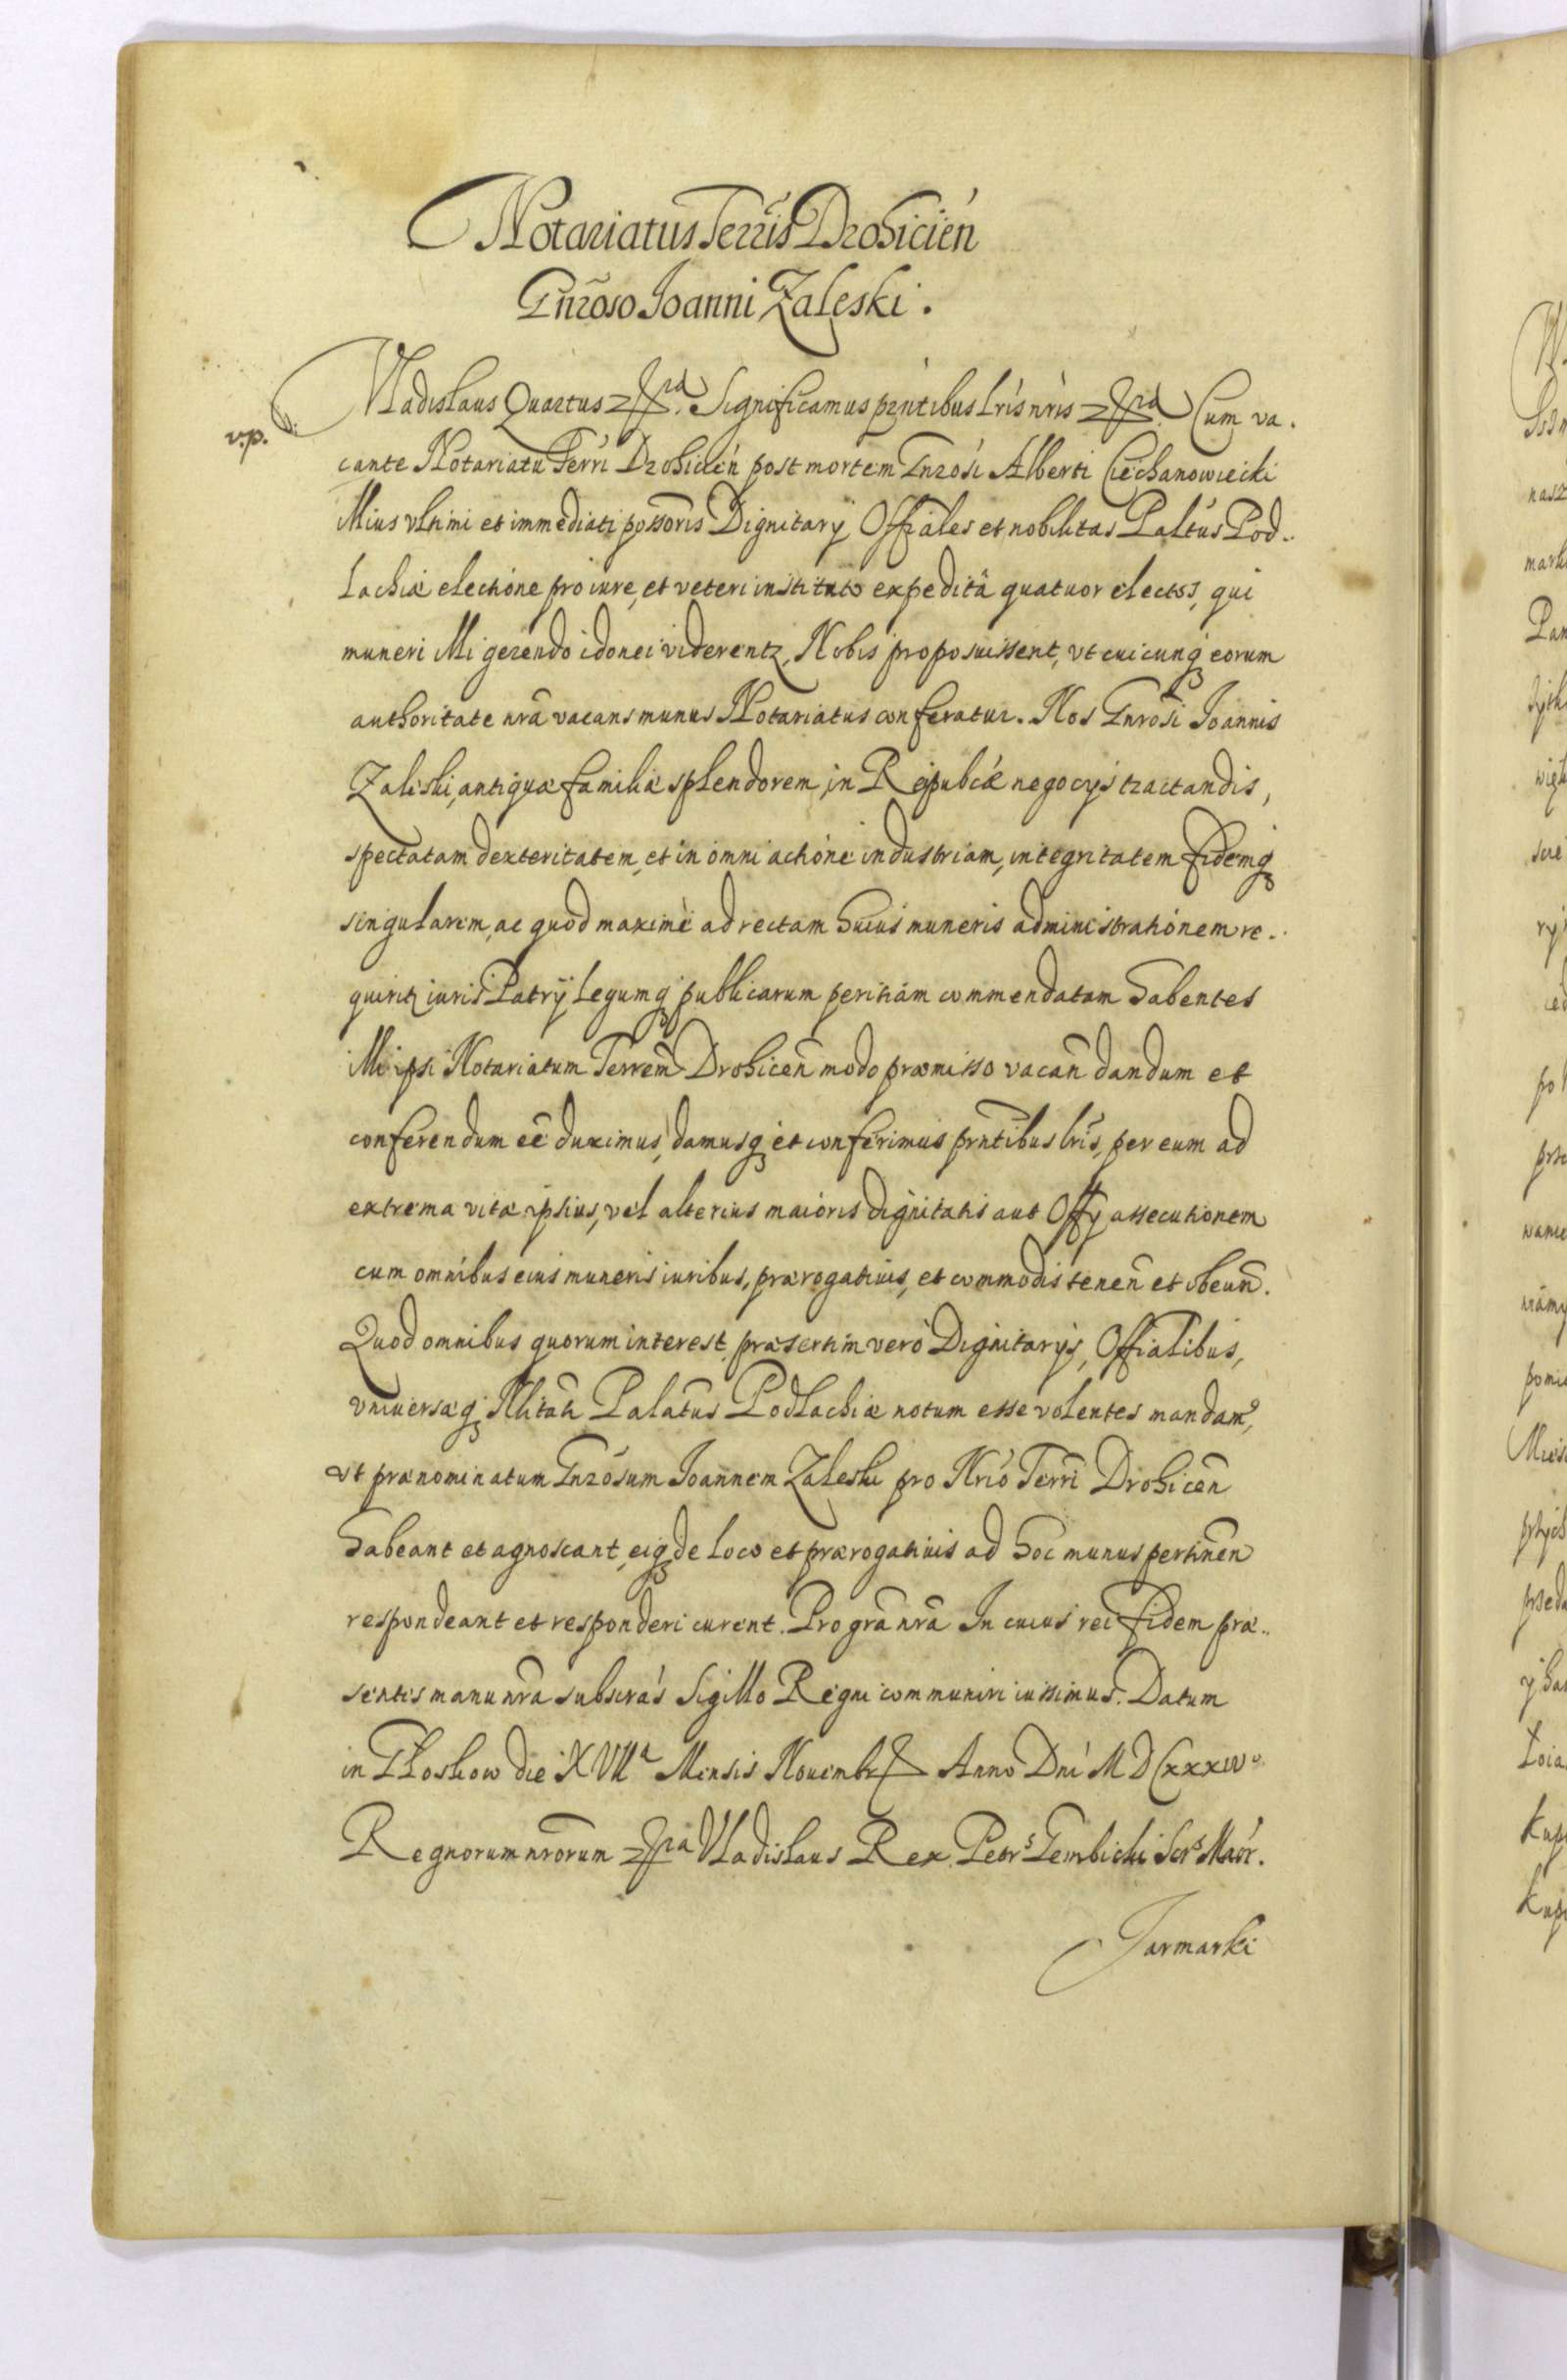 Notariatus Terris Drohicień
Gnroso Ioanni Zaleski.
v.p.
Vladislaus Quartus etc. Significamus prntibus lris nris etc. Cum va.
cante Notariatu Terri Drohicień post mortem Gnrosi Alberti Ciechanowiecki
illius vltimi et immediati possoris Dignitarÿ Offiales et nobilitas Paltus Pod..
lachiæ electione pro iure, et veteri instituto expeditâ quatuor electos, qui
muneri illi gerendo idonei viderentr, Nobis proposuissent, vt cuicunq eorum
authoritate nra vacans munus Notariatus conferatur. Nos Gnrosi Ioannis
Zaleski, antiquæ familiæ splendorem, in Reipubcæ negocÿs tractandis,
spectatam dexteritatem, et in omni actione industriam, integritatem fidemq
singularem, ac quod maximè ad rectam huius muneris administrationem re..
quiritr iuris Patrÿ legumq publicarum peritiam commendatam habentes
illi ipsi Notariatum Terrem Drohicen modo præmisso vacan dandum et
conferendum eē duximus, damusq et conferimus prntibus lris, per eum ad
extrema vitæ ipsius, vel alterius maioris dignitatis aut Offÿ assecutionem
cum omnibus eius muneris iuribus, prærogatiuis, et commodis tenen et obeun.
Quod omnibus quorum interest, præsertim verò Dignitarÿs, Offialibus,
vniuersæq Nlitati Palatus Podlachiæ notum esse volentes mandam9,
vt prænominatum Gnrosum Ioannem Zaleski pro Nrio Terri Drohicen
habeant et agnoscant, eiq de loco et prærogatiuis ad hoc munus pertinen
respondeant et responderi curent. Pro gra nra In cuius rei fidem præ..
sentes manu nra subscras Sigillo Regni communiri iussimus. Datum
in Tłoskow die XVIIa Mensis Nouembr Anno Dni MDCxxxiVo
Regnorum nrorum etc. Vladislaus Rex. Petrs Gembicki Scrs Maior.
Jarmarki